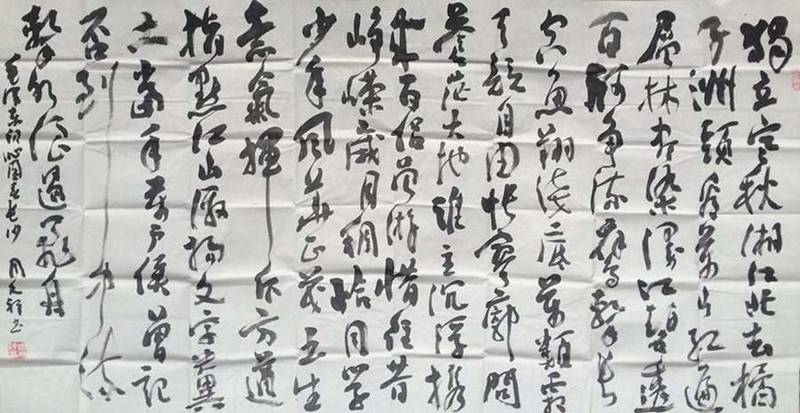 獨立寒秋湘江北去橘
子洲頭看萬山紅遍
層林盡染漫江碧透
百舸争流鷹擊長
空魚翔淺底萬類霜
天競自由悵寥廓問
蒼茫大地誰主沉浮携
來百侣曾游往昔
崢嶸歲月稠恰同學
少年風華正茂書生
意氣揮斥方遒
指點江山激揚文字糞
土當年萬户侯曾記
否到中流
擊水浪遏飛舟
毛澤東詞沁園春長沙